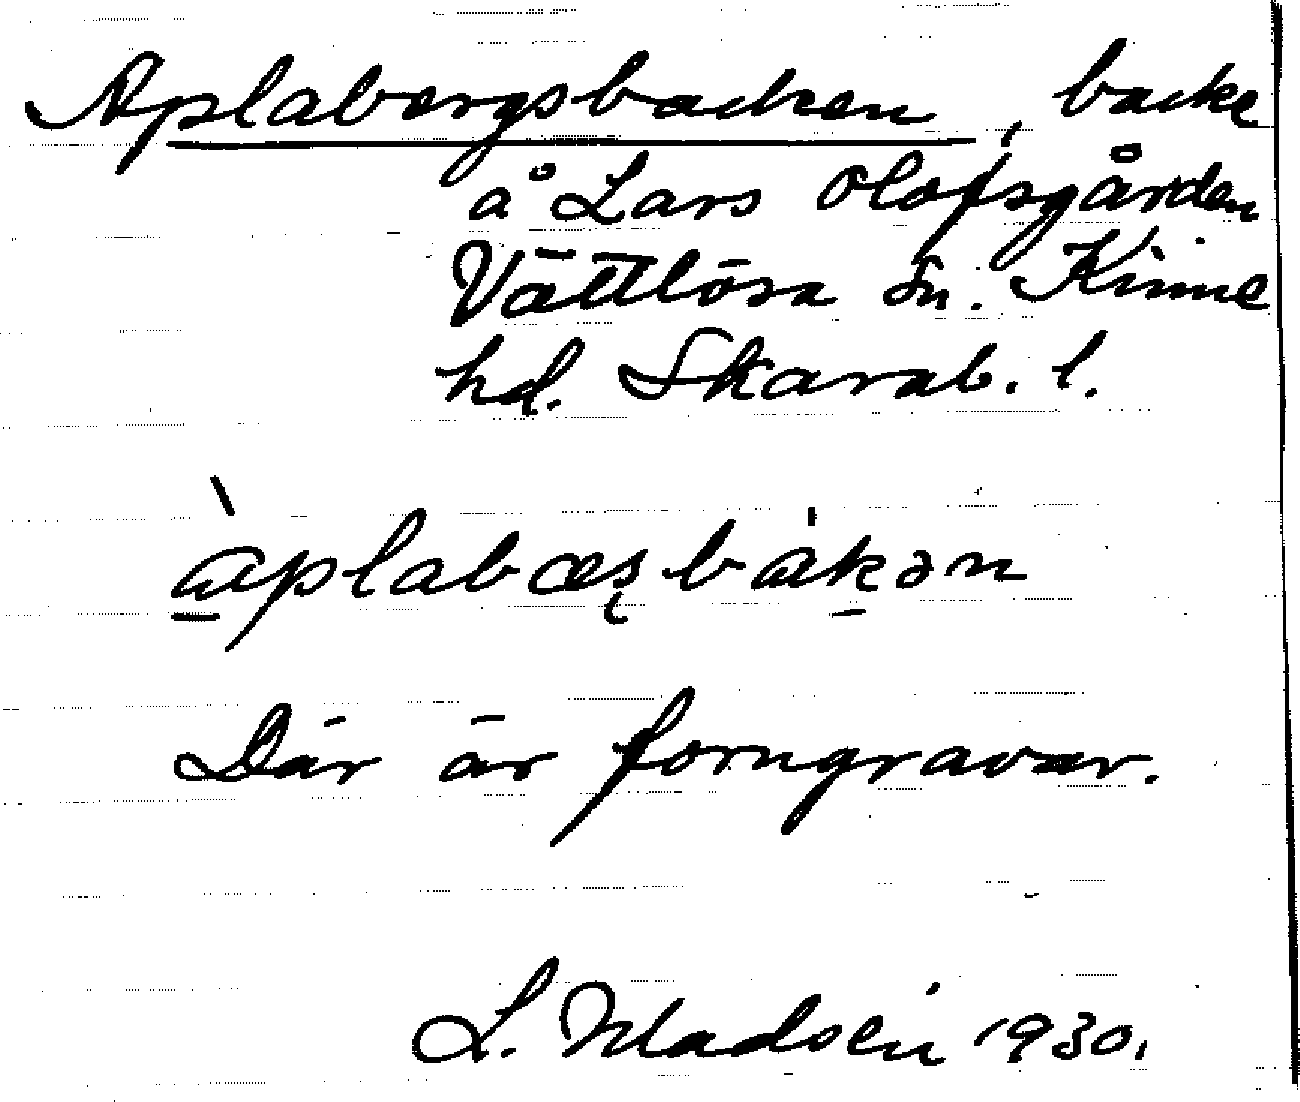 Aplabergsbacken, backe
å Lars Olofsgården
Vättlösa sn. Kinne
hd. Skarab. l.
àplabæs̨bákən
Där är forngravar.
L. Madsén 1930.